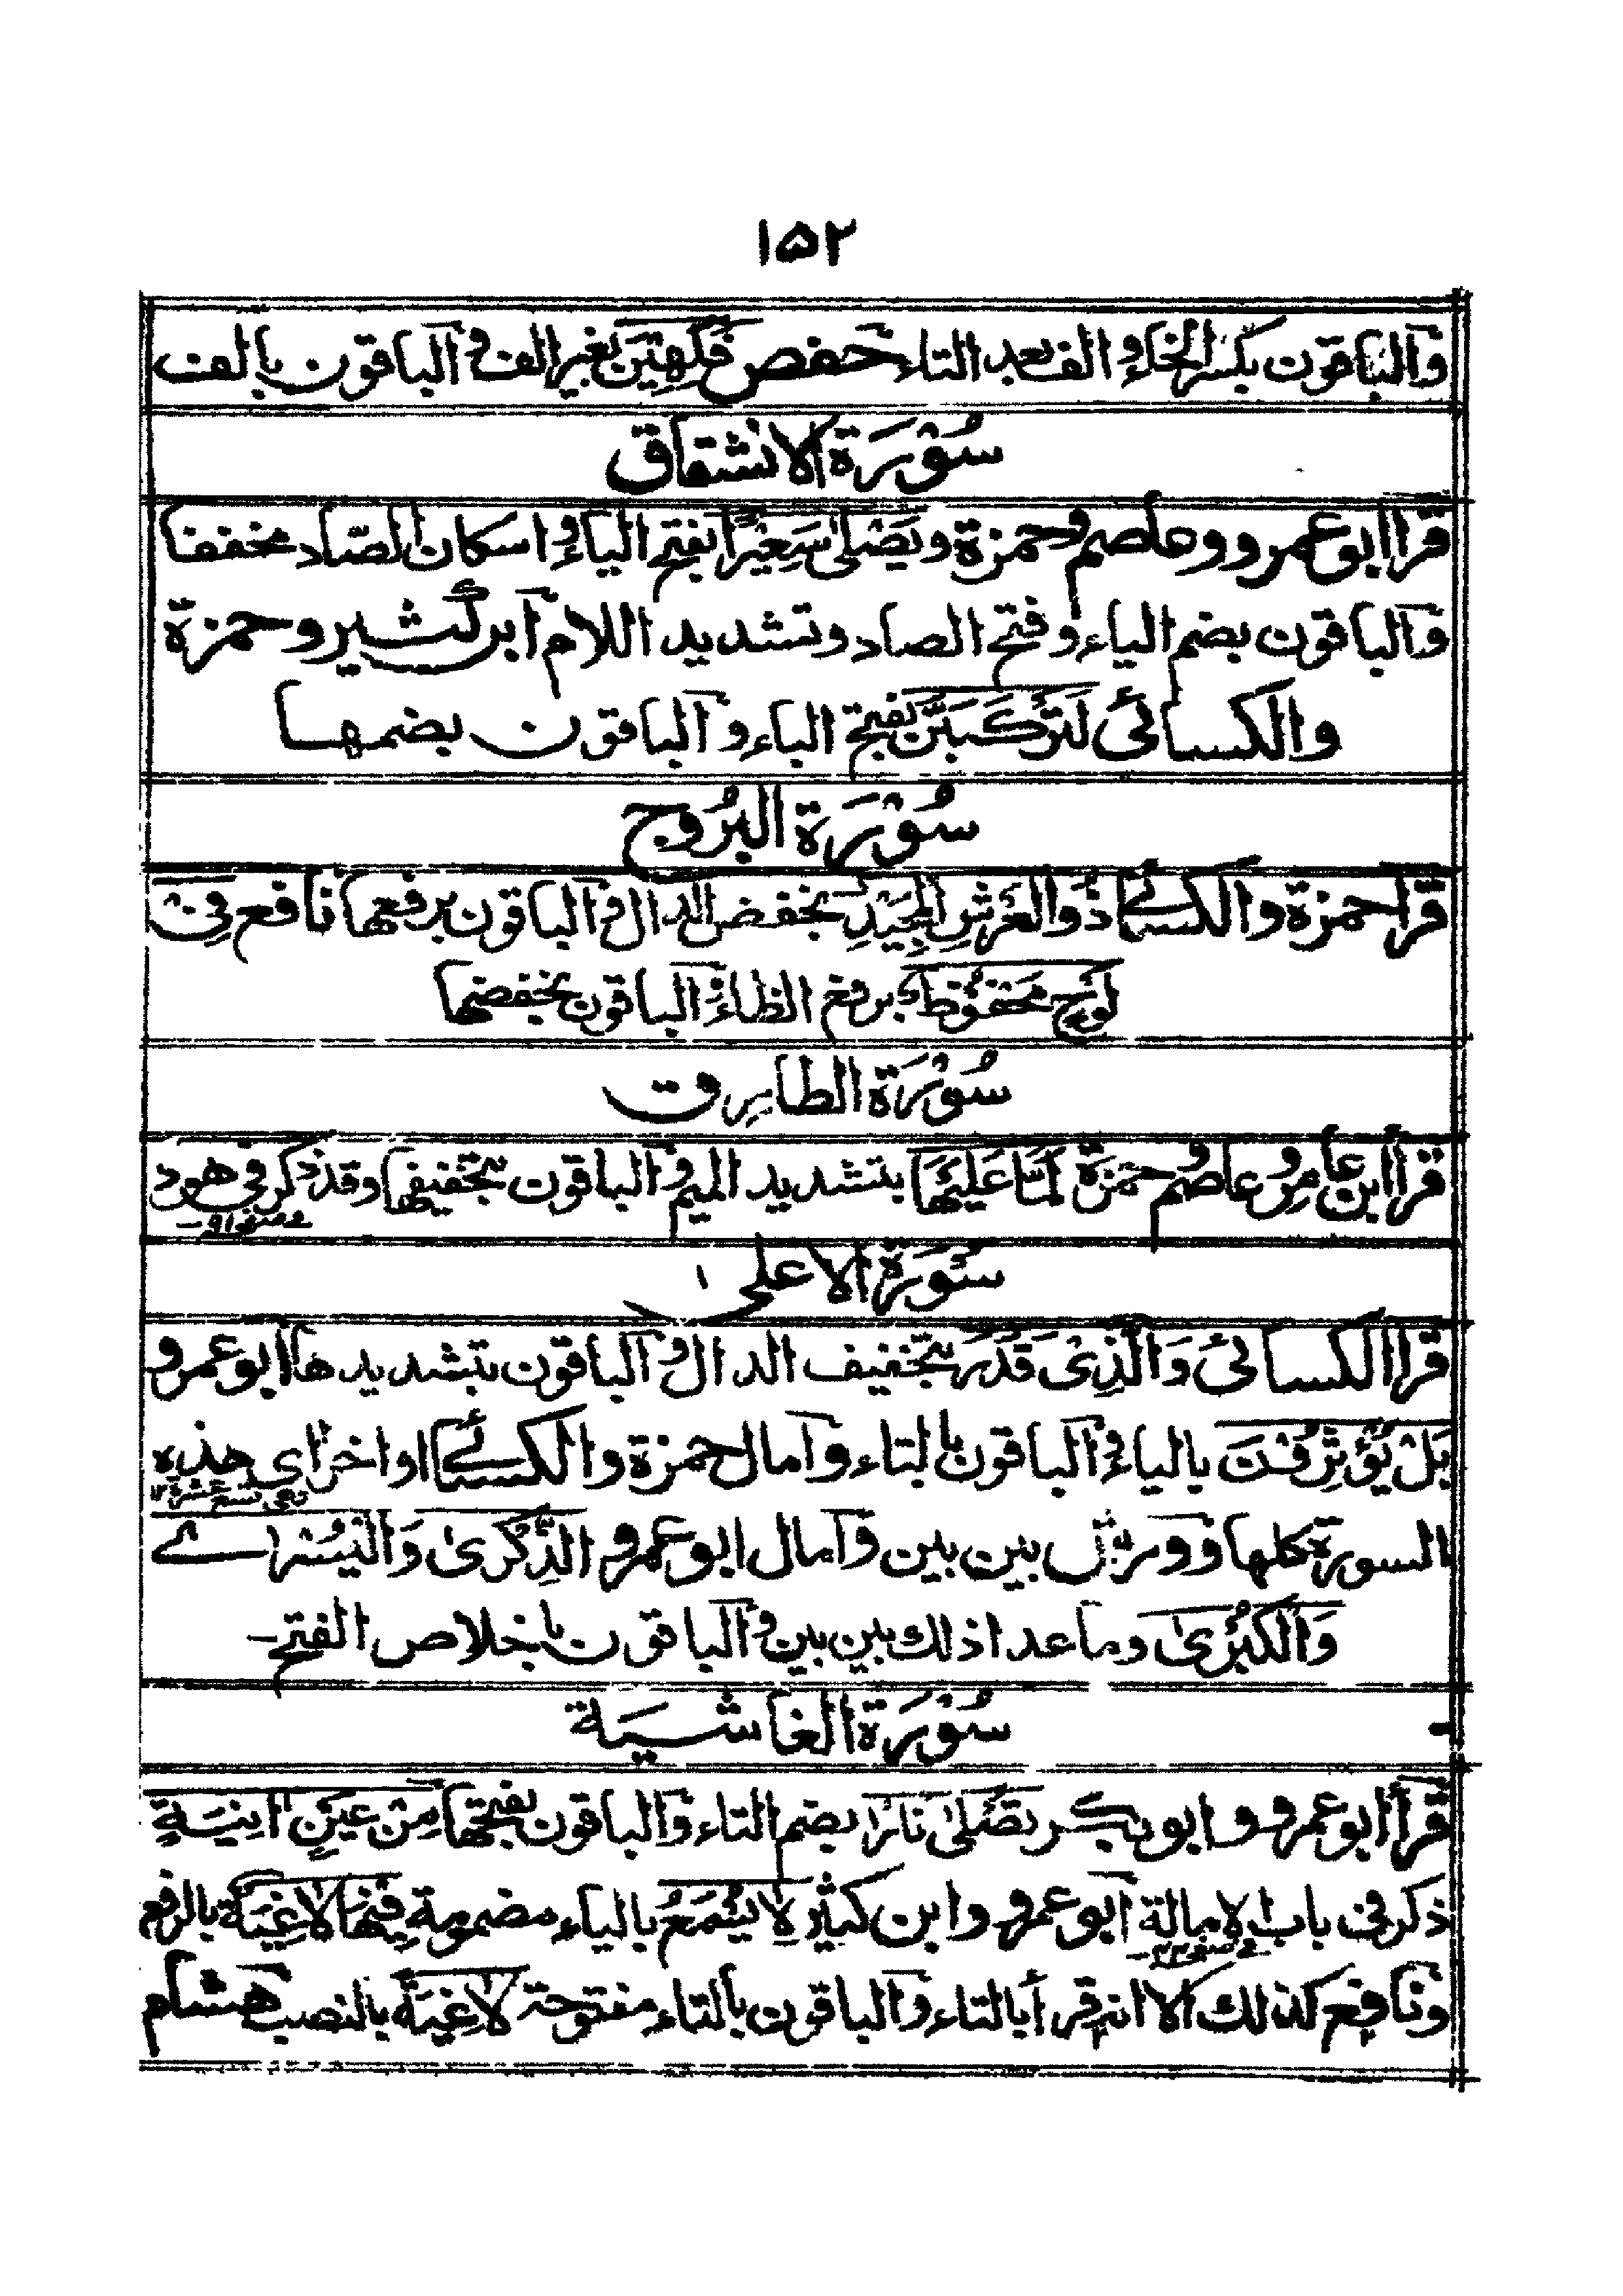 ١٥٢
والباقون بكسر الخاء والف بعد التاء حفص فَكِهِيْنَ بغير الف والباقون بالف
سُوْرَة الانشقاق
قرا ابو عمرو وعاصم وحمزة ويَصْلٰى سَعِيْرًا بفتح الياء واسكان الصاد مخففا
والباقون بضم الياء وفتح الصاد وتشديد اللام ابن كثير وحمزة
والكسائى لَتَرْكَبَنَّ بفتح الباء والباقون بضمها
سُوْرَة البُرُوج
قرا حمزة والكسائے ذُو الْعَرْشِ الْمَجِيْدِ بخفض الدال والباقون برفعها نافع فِىْ
لَوْحٍ مَّحْفُوْظٌ برفع الظاء والباقون بخفضها
سُوْرَة الطارق
قرا ابن عامر وعاصم وحمزة لَمَّا عَلَيْهَا بتشديد الميم والباقون بتخفيفها وقد ذكر فى هود
فى صفحه ٩١
سُوْرَة الاعلى
قرا الكسائى وَالَّذِىْ قَدَرَ بتخفيف الدال والباقون بتشديدها ابو عمرو
بَلْ يُؤْثِرُوْنَ بالياء والباقون بالتاء وامال حمزة والكسائے اواخر اى هذه
وهى تسع عشرة ١٢
السورة كلها وورش بين بين وامال ابو عمرو الذِّكْرٰى وَالْيُسْرٰے
وَالْكُبْرٰى وما عدا ذلك بين بين والباقون باخلاص الفتح
سُوْرَة الغاشيَة
قرا ابو عمرو وابو بكر تُصْلٰى نَارًا بضم التاء والباقون بفتحها مِنْ عَيْنٍ اٰنِيَةٍ
ذكر فى باب الامالة ابو عمرو وابن كثير لَا يُسْمَعُ بالياء مضمومة فِيْهَا لَاغِيَةٌ بالرفع
فى صفحه ٣٣
ونافع كذلك الا انه قرأ بالتاء والباقون بالتاء مفتوحة لَاغِيَةً بالنصب هشام